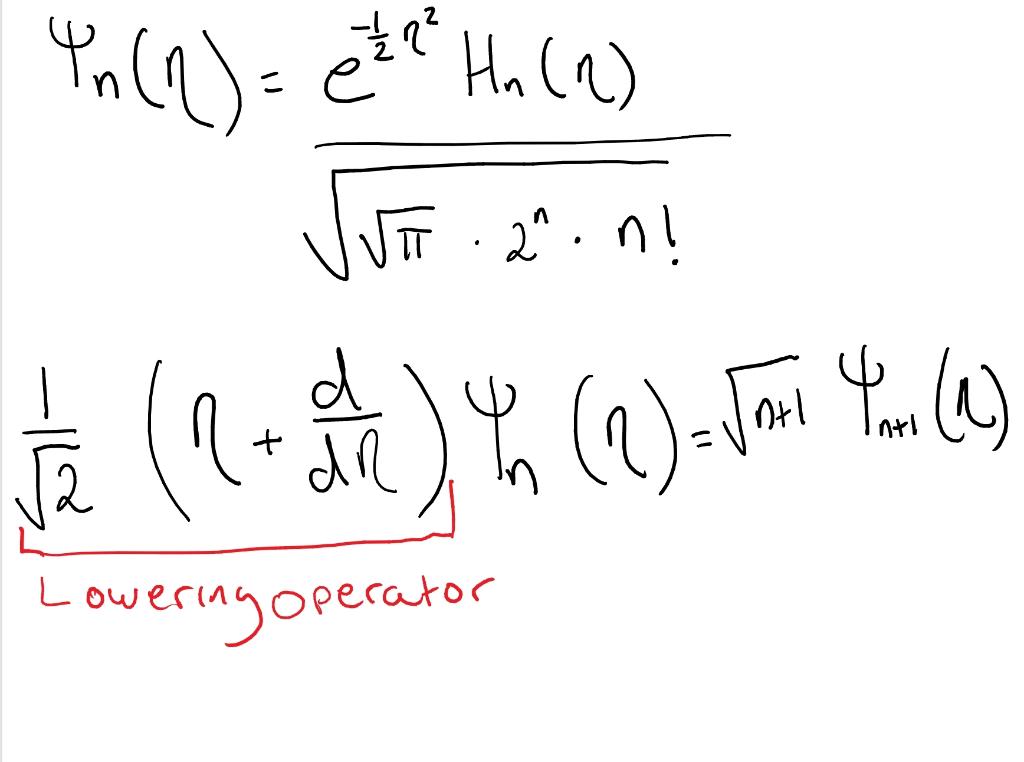 Ψn(η) = e^(-1/2 η²) Hn(η) / √(√π · 2ⁿ · n!)
1/√2 (η + d/dη) Ψn(η) = √(n+1) Ψn+1(η)
Lowering operator